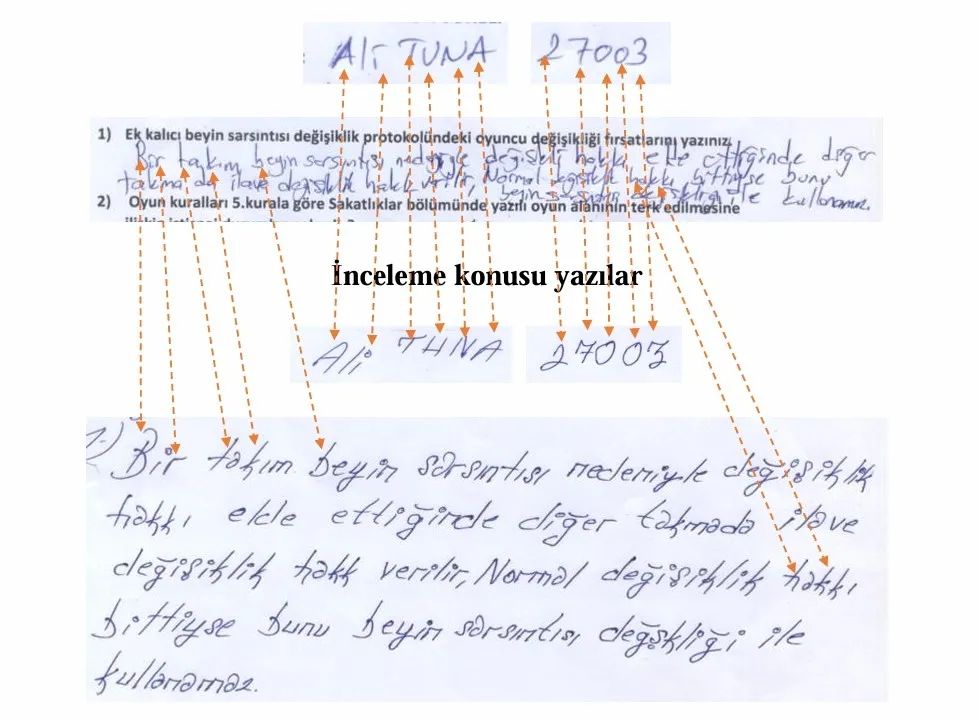 Ali TUNA 27003
1) Ek kalıcı beyin sarsıntısı değişiklik protokolündeki oyuncu değişikliği fırsatlarını yazınız.
Bir takım beyin sarsıntısı nedeniyle değişiklik hakkı elde ettiğinde diğer
takıma da ilave değişiklik hakkı verilir, Normal değişiklik hakkı bittiyse bunu
beyin sarsıntısı değişikliği ile kullanamaz.
2) Oyun kuralları 5.kurala göre Sakatlıklar bölümünde yazılı oyun alanının terk edilmesine
İnceleme konusu yazılar
Ali TUNA 27003
1-) Bir takım beyin sarsıntısı nedeniyle değişiklik
hakkı elde ettiğinde diğer takımada ilave
değişiklik hakk verilir, Normal değişiklik hakkı
bittiyse bunu beyin sarsıntısı değşkliği ile
kullanamaz.